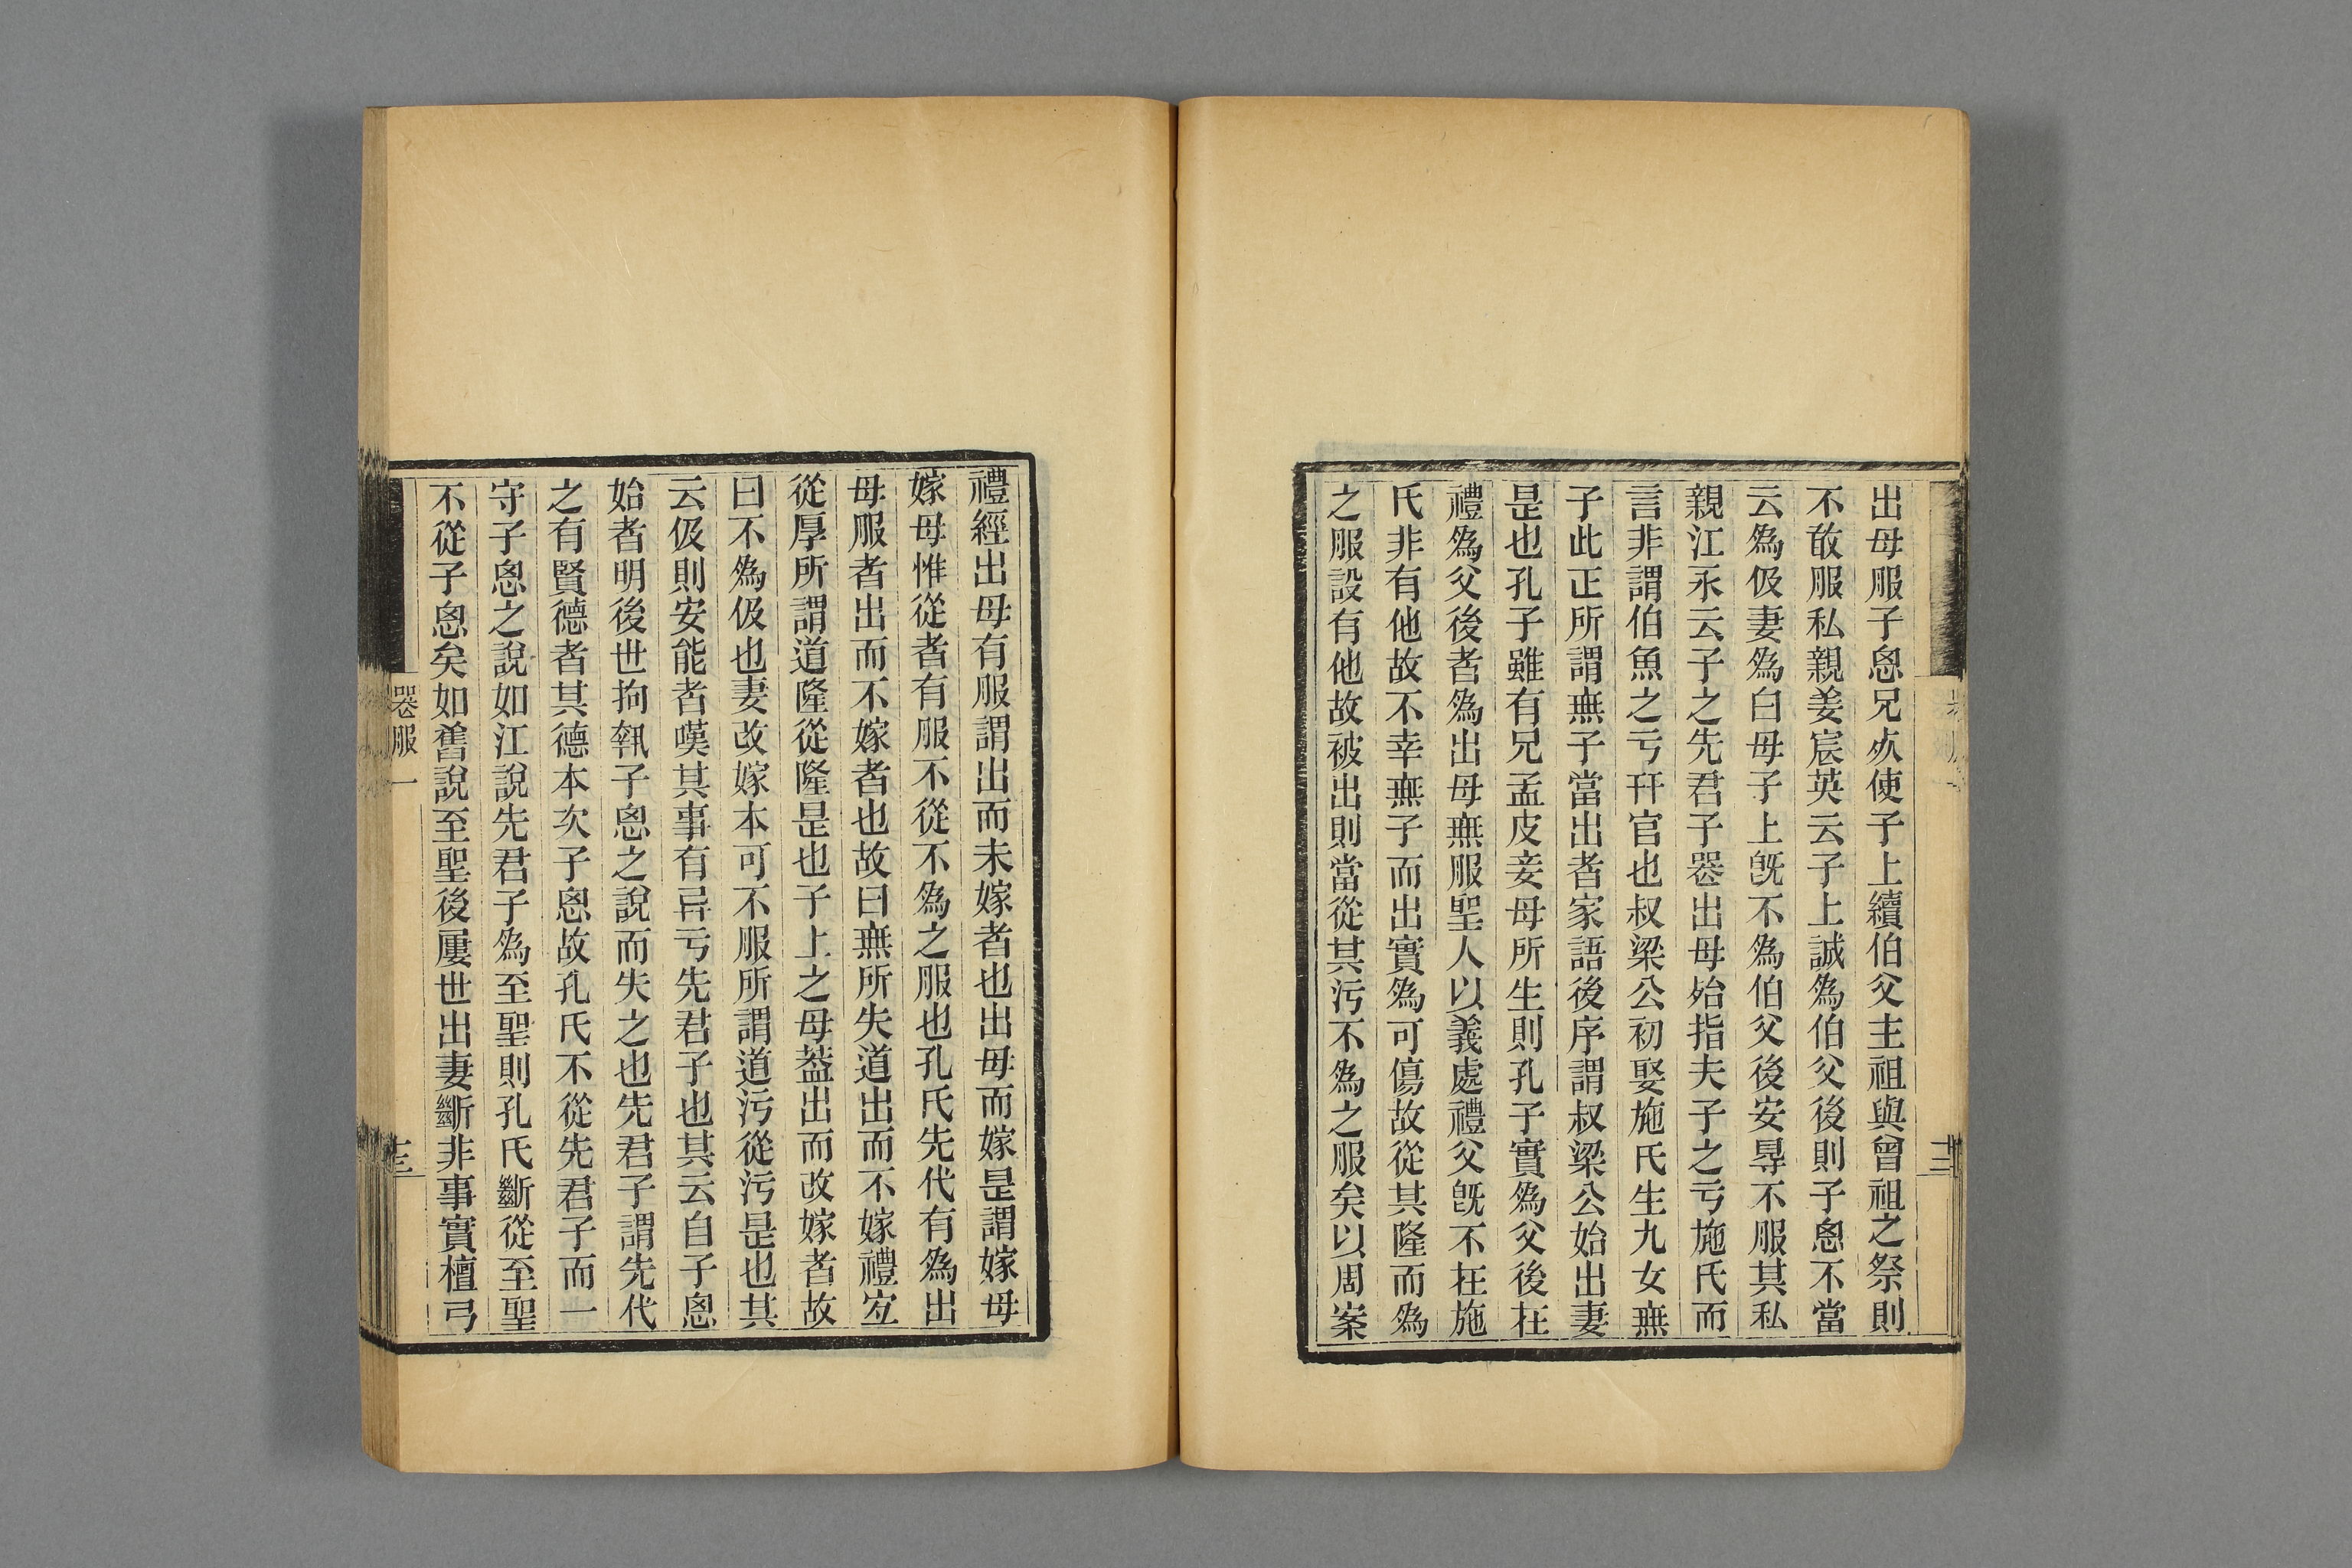 出母服子恖兄𣦸使子上續伯父主祖與曾祖之祭則
不敢服私親姜宸英云子上誠爲伯父後則子恖不當
云爲伋妻爲白母子上旣不爲伯父後安㝵不服其私
親江永云子之先君子器出母殆指夫子之亏施氏而
言非謂伯魚之亏幵官也叔梁公初娶施氏生九女無
子此正所謂無子當出者家語後序謂叔梁公始出妻
是也孔子雖有兄孟皮妾母所生則孔子實爲父後在
禮爲父後者爲出母無服聖人以義處禮父旣不在施
氏非有他故不幸無子而出實爲可傷故從其隆而爲
之服設有他故被出則當從其污不爲之服矣以周案
禮經出母有服謂出而未嫁者也出母而嫁是謂嫁母
嫁母惟從者有服不從不爲之服也孔氏先代有爲出
母服者出而不嫁者也故曰無所失道出而不嫁禮宐
從厚所謂道隆從隆是也子上之母葢出而改嫁者故
曰不爲伋也妻改嫁本可不服所謂道污從污是也其
云伋則安能者嘆其事有异亏先君子也其云自子恖
始者明後世拘執子恖之說而失之也先君子謂先代
之有賢德者其德本次子恖故孔氏不從先君子而一
守子恖之說如江說先君子爲至聖則孔氏斷從至聖
不從子恖矣如舊說至聖後屢世出妻斷非事實檀弓
喪服一
十三